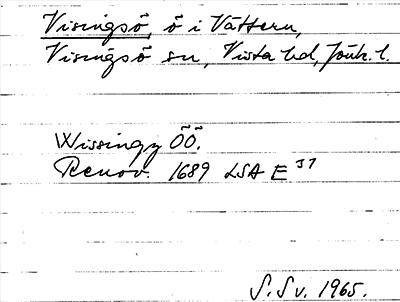 Visingsö, ö i Vättern,
Visingsö sn, Vista hd, Jönk. l.
Wissingz ÖÖ.
Renov. 1689 LSA E 37
S. Sv. 1965.